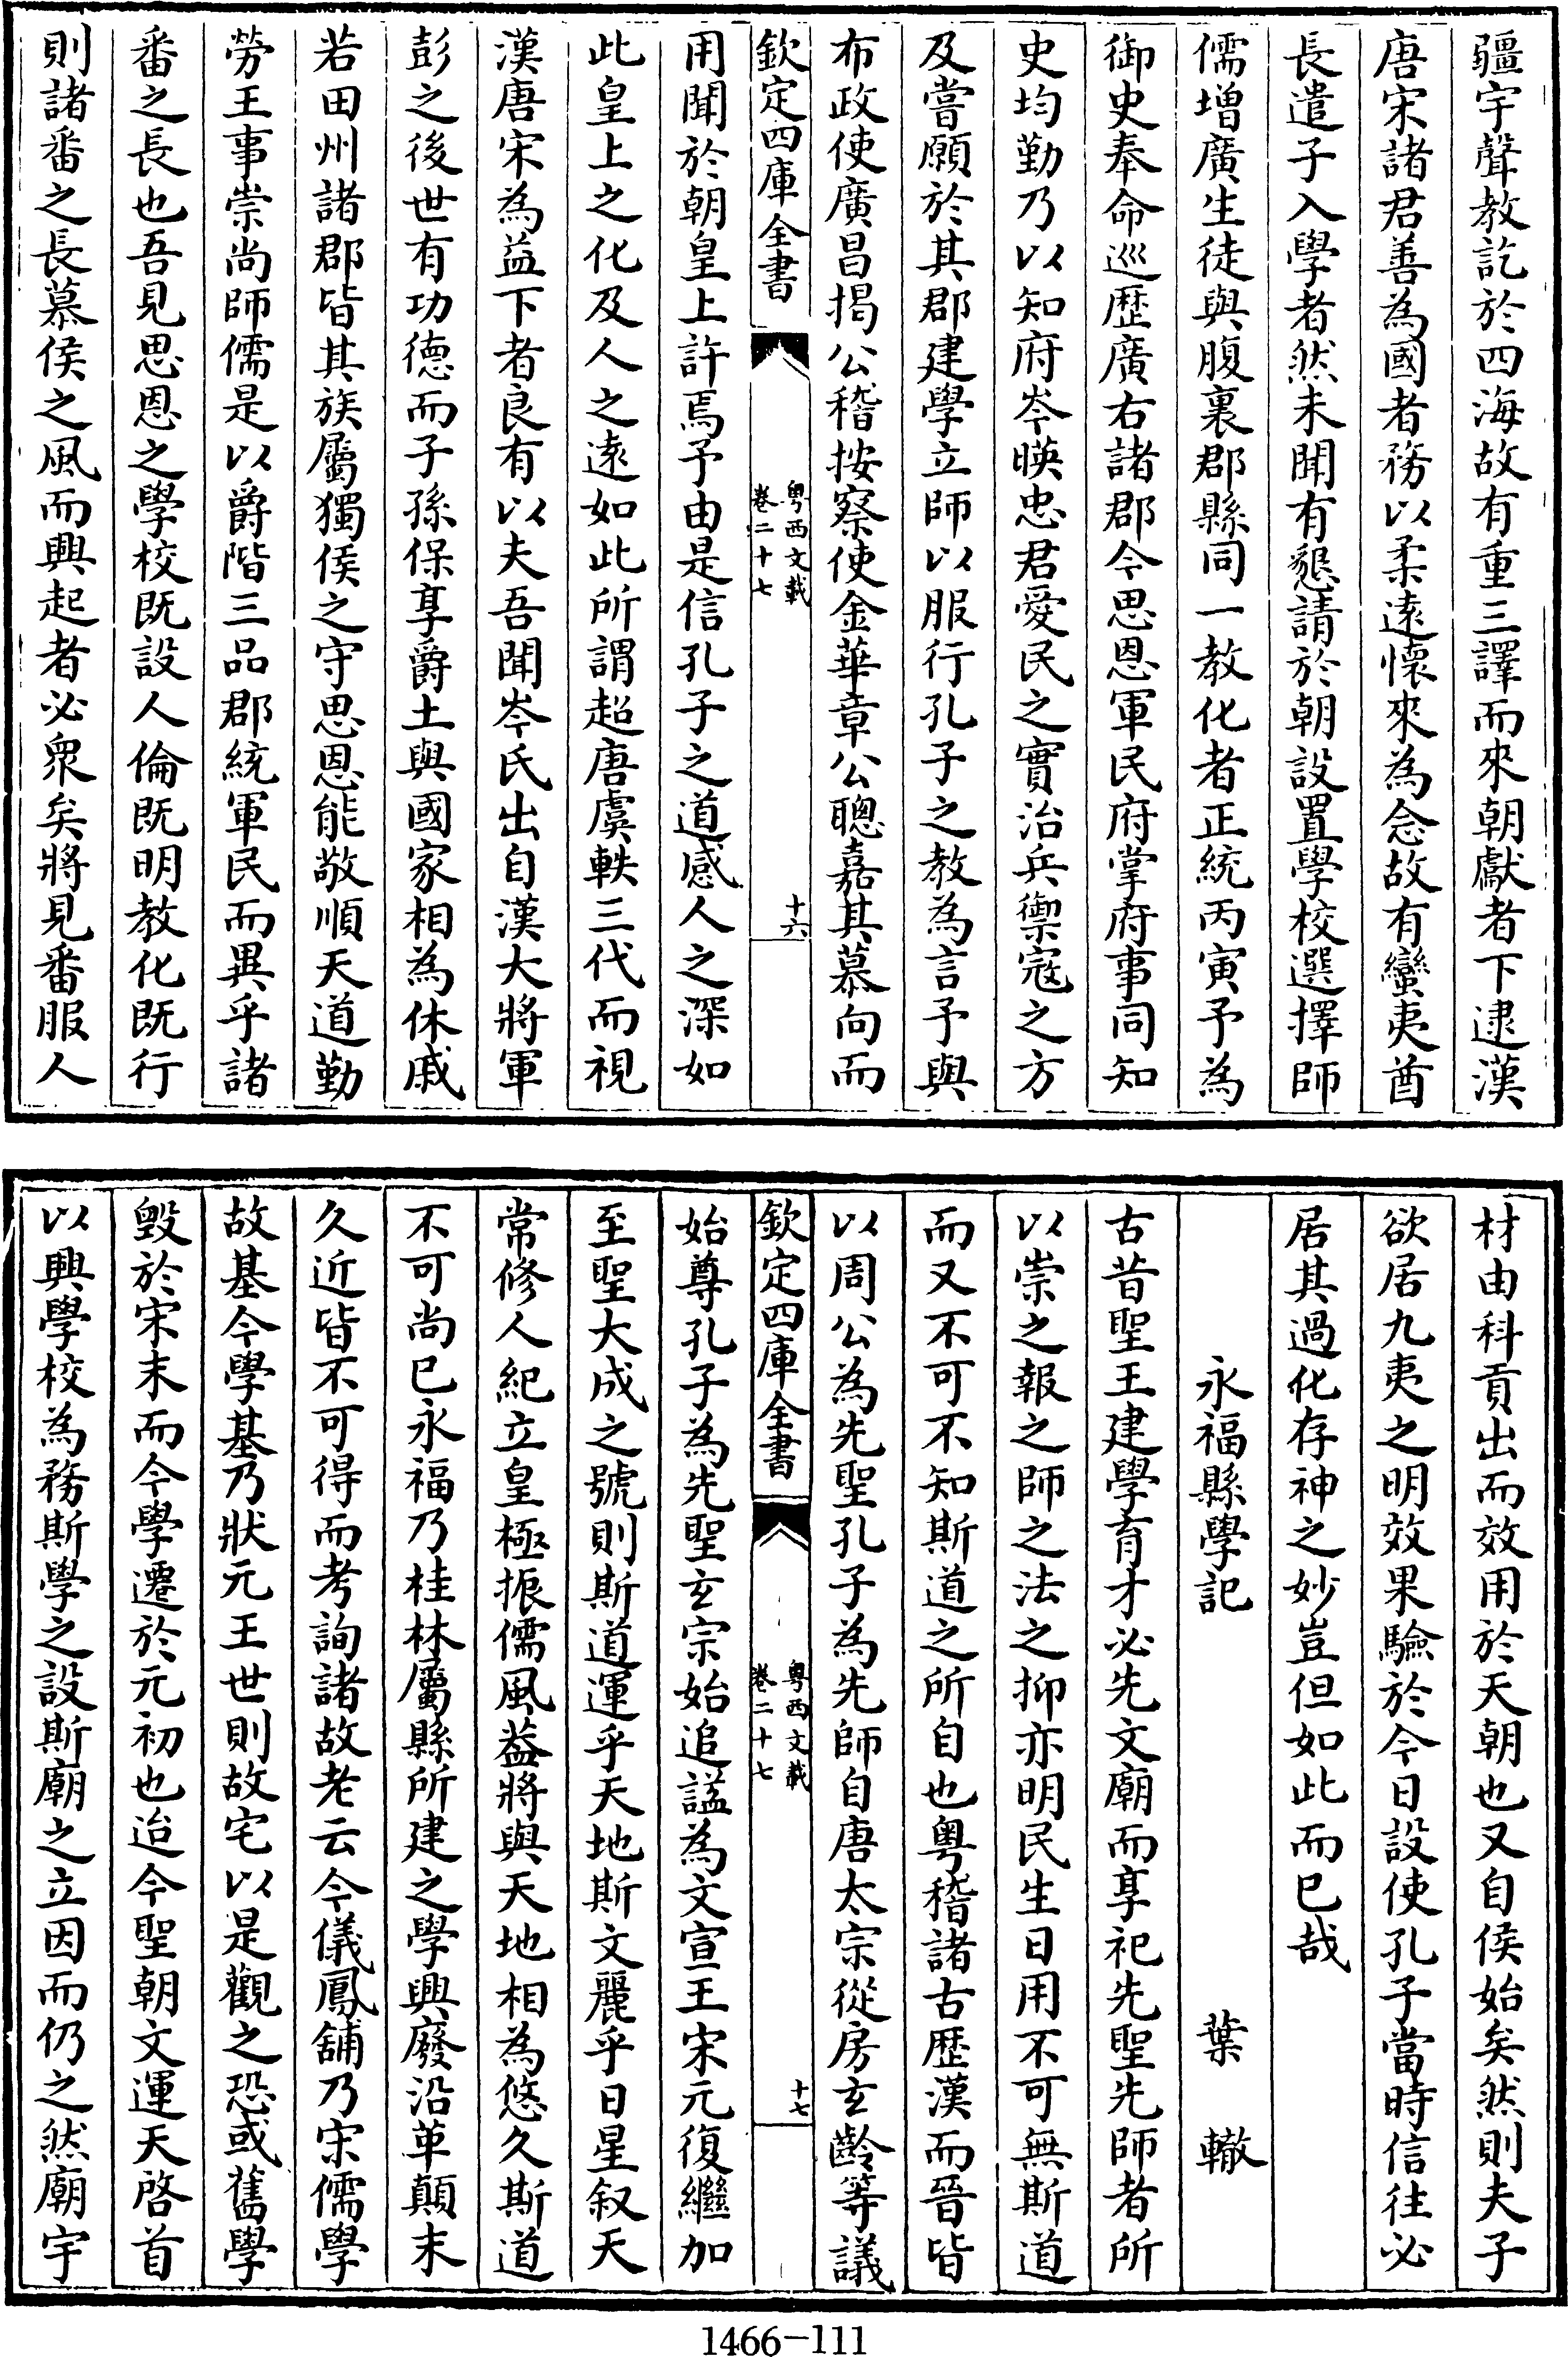 疆宇聲教訖於四海故有重三譯而來朝獻者下逮漢
唐宋諸君善為國者務以柔遠懷來為念故有蠻夷酋
長遣子入學者然未聞有懇請於朝設置學校選擇師
儒增廣生徒與腹裏郡縣同一教化者正統丙寅予為
御史奉命巡歷廣右諸郡今思恩軍民府掌府事同知
史均勤乃以知府岑暎忠君愛民之實治兵禦寇之方
及嘗願於其郡建學立師以服行孔子之教為言予與
布政使廣昌揭公稽按察使金華章公聰嘉其慕向而
欽定四庫全書
粤西文載
卷二十七
十六
用聞於朝皇上許焉予由是信孔子之道感人之深如
此皇上之化及人之遠如此所謂超唐虞軼三代而視
漢唐宋為益下者良有以夫吾聞岑氏出自漢大將軍
彭之後世有功德而子孫保享爵土與國家相為休戚
若田州諸郡皆其族屬獨侯之守思恩能敬順天道勤
勞王事崇尚師儒是以爵階三品郡統軍民而異乎諸
番之長也吾見思恩之學校既設人倫既明教化既行
則諸番之長慕侯之風而興起者必衆矣將見番服人
材由科貢出而效用於天朝也又自侯始矣然則夫子
欲居九夷之明效果驗於今日設使孔子當時信往必
居其過化存神之妙豈但如此而已哉
永福縣學記 葉轍
古昔聖王建學育才必先文廟而享祀先聖先師者所
以崇之報之師之法之抑亦明民生日用不可無斯道
而又不可不知斯道之所自也粤稽諸古歷漢而晉皆
以周公為先聖孔子為先師自唐太宗從房玄齡等議
欽定四庫全書
粤西文載
卷二十七
十七
始尊孔子為先聖玄宗始追諡為文宣王宋元復繼加
至聖大成之號則斯道運乎天地斯文麗乎日星叙天
常修人紀立皇極振儒風益將與天地相為悠久斯道
不可尚已永福乃桂林屬縣所建之學興廢沿革顛末
久近皆不可得而考詢諸故老云今儀鳳舖乃宋儒學
故基今學基乃狀元王世則故宅以是觀之恐或舊學
毀於宋末而今學遷於元初也迨今聖朝文運天啓首
以興學校為務斯學之設斯廟之立因而仍之然廟宇
1466-111